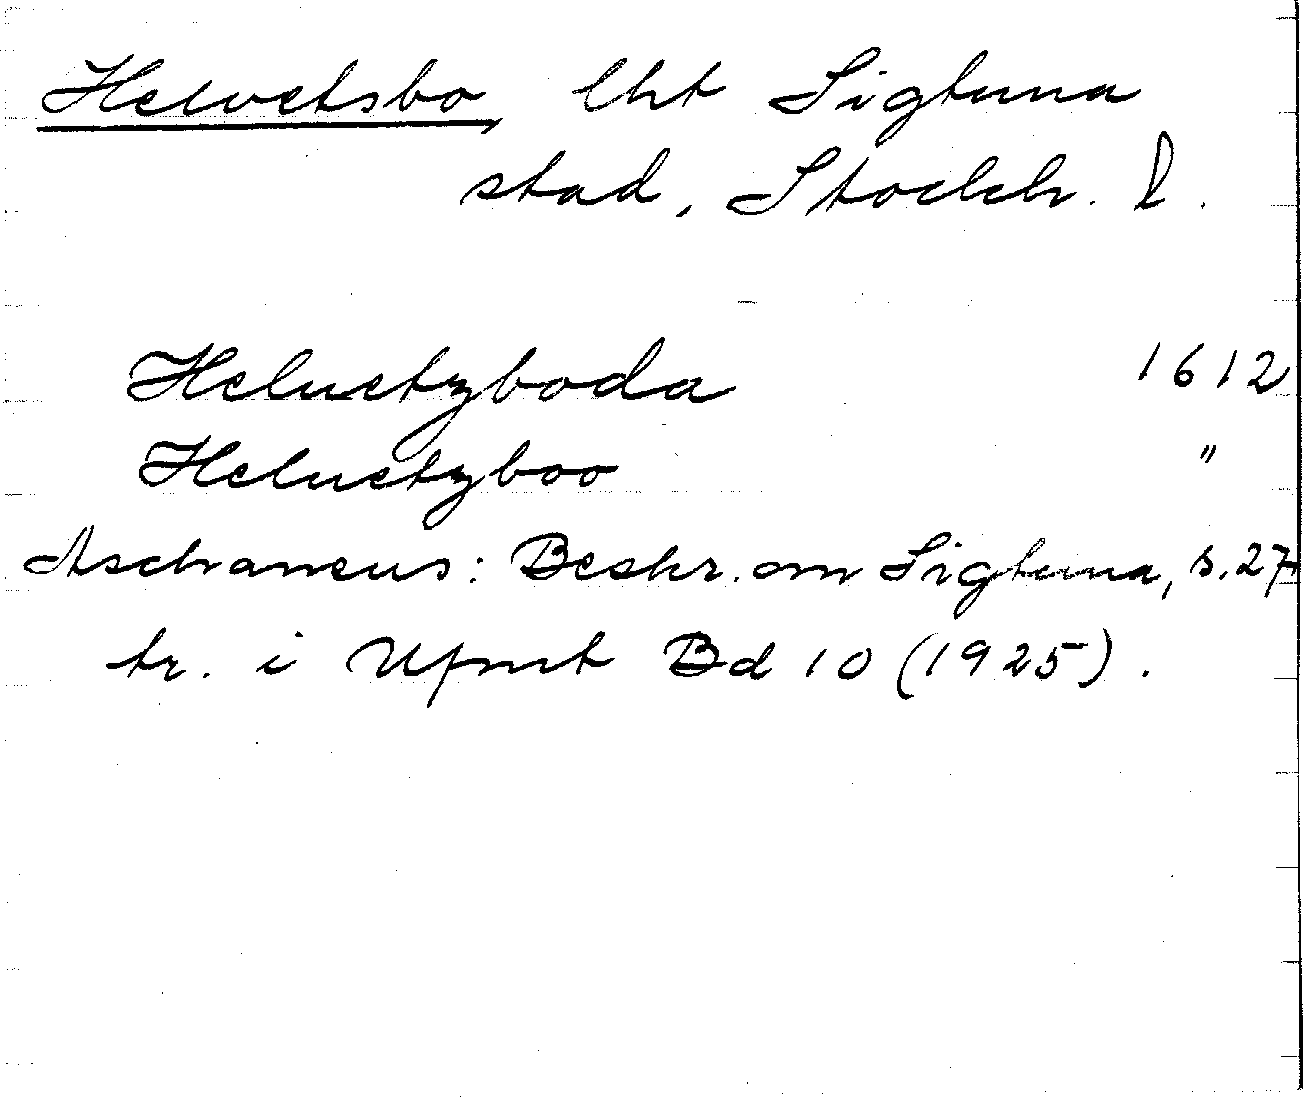 Helvetsbo, lht Sigtuna
stad, Stockh. l.
Heluetzboda 1612
Heluetzboo "
Aschaneus: Beskr. om Sigtuna, s. 27
tr. i Ufmt Bd 10 (1925).